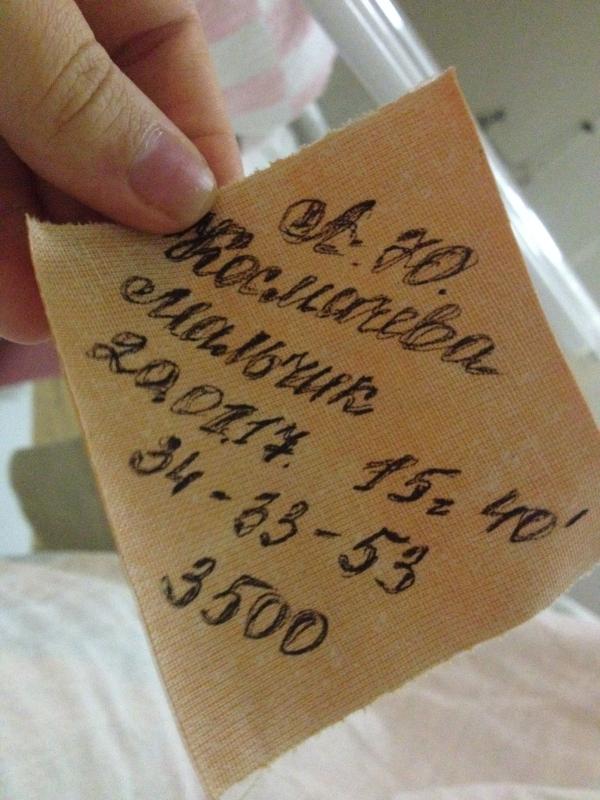 А. Ю.
Космачева
мальчик
20.01.17. 15= 40'
34-33-53
3500